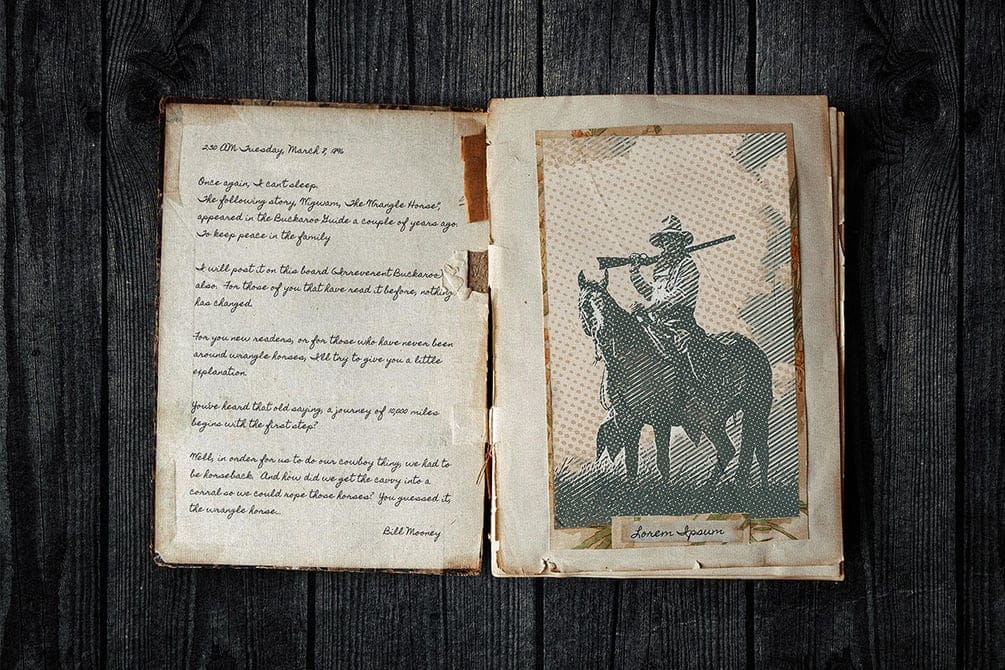 2:30 AM Tuesday, March 8, 1896
Once again, I can't sleep.
The following story, "Wigwam, The Wrangle Horse",
appeared in the Buckaroo Guide a couple of years ago.
To keep peace in the family
I will post it on this board (Irreverent Buckaroo)
also. For those of you that have read it before, nothing
has changed.
For you new readers, or for those who have never been
around wrangle horses, I'll try to give you a little
explanation.
You've heard that old saying, a journey of 10,000 miles
begins with the first step?
Well, in order for us to do our cowboy thing, we had to
be horseback. And how did we get the cavvy into a
corral so we could rope those horses? You guessed it,
the wrangle horse...
Bill Mooney
Lorem Ipsum